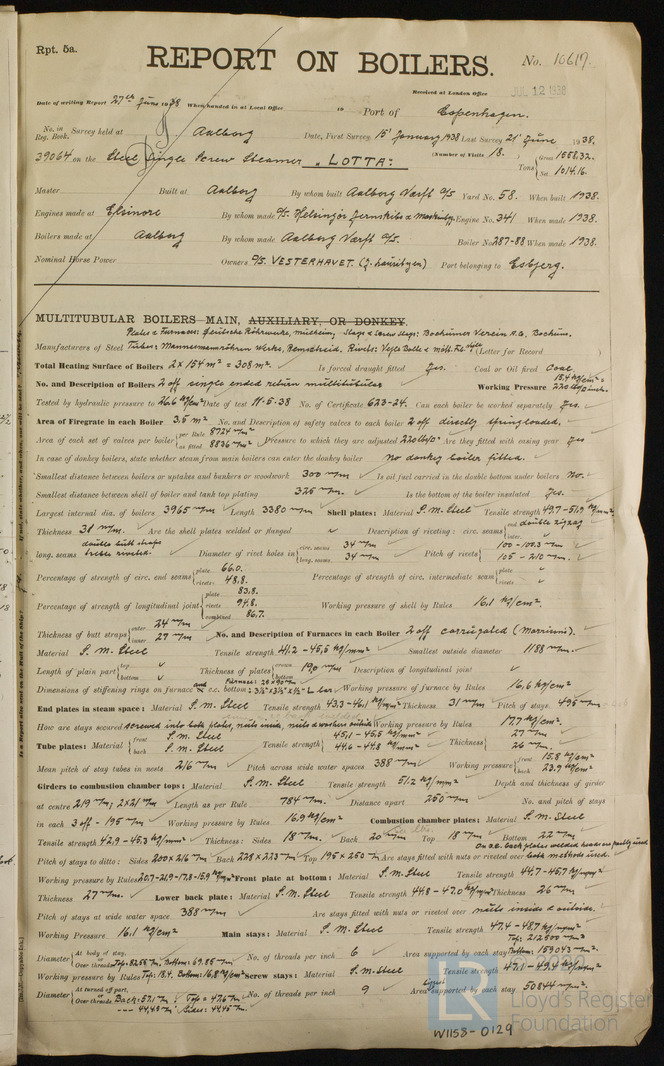 Rpt. 5a.
REPORT ON BOILERS.
No. 10617.
Received at London Office JUL 12 1938
Date of writing Report 27th June 1938 When handed in at Local Office 19 Port of Copenhagen.
No. in Reg. Book. Survey held at Aalborg Date, First Survey 15' January 1938 Last Survey 21' June 1938.
39064 on the Steel Single Screw Steamer "LOTTA". (Number of Visits 18.) Tons Gross 1558.32. Net 1014.16.
Master Built at Aalborg By whom built Aalborg Værft A/S Yard No. 58. When built 1938.
Engines made at Elsinore By whom made A/S. Helsingør Jernskibs & Maskinbyg. Engine No. 341 When made 1938.
Boilers made at Aalborg By whom made Aalborg Værft A/S. Boiler No. 287-88 When made 1938.
Nominal Horse Power Owners D/S. VESTERHAVET. (J. Lauritzen) Port belonging to Esbjerg.
MULTITUBULAR BOILERS MAIN, AUXILIARY, OR DONKEY.
Plates & Furnaces: Deutsche Röhrwerke, Mülheim, Stays & Screw Stays: Bochumer Verein A.G., Bochum.
Manufacturers of Steel Tubes: Mannesmannröhren Werke, Remscheid. Rivets: (Letter for Record )
Total Heating Surface of Boilers 2 x 154 m² = 308 m². Is forced draught fitted Yes. Coal or Oil fired Coal.
No. and Description of Boilers 2 off single ended return multitubular Working Pressure 15.4 kg/cm² = 220 lb/□inch.
Tested by hydraulic pressure to 26.6 kg/cm² Date of test 11-5-38 No. of Certificate 623-24. Can each boiler be worked separately Yes.
Area of Firegrate in each Boiler 3.5 m² No. and Description of safety valves to each boiler 2 off directly springloaded.
Area of each set of valves per boiler per Rule 8724 m/m² as fitted 8836 m/m² Pressure to which they are adjusted 220 lb/□" Are they fitted with easing gear Yes
In case of donkey boilers, state whether steam from main boilers can enter the donkey boiler no donkey boiler fitted.
Smallest distance between boilers or uptakes and bunkers or woodwork 300 m/m Is oil fuel carried in the double bottom under boilers No.
Smallest distance between shell of boiler and tank top plating 325 m/m. Is the bottom of the boiler insulated Yes.
Largest internal dia. of boilers 3965 m/m Length 3380 m/m Shell plates: Material S.M. Steel Tensile strength 49.7-51.9 kg/mm²
Thickness 31 m/m. Are the shell plates welded or flanged Description of riveting: circ. seams end double zigzag inter.
long. seams double butt straps treble riveted. Diameter of rivet holes in circ. seams 34 m/m long. seams 34 m/m Pitch of rivets 100-100.3 m/m 105-210 m/m.
Percentage of strength of circ. end seams plate 66.0. rivets 48.8. Percentage of strength of circ. intermediate seam plate rivets
Percentage of strength of longitudinal joint plate 83.8. rivets 94.8. combined 86.7. Working pressure of shell by Rules 16.1 kg/cm².
Thickness of butt straps outer 24 m/m inner 27 m/m No. and Description of Furnaces in each Boiler 2 off corrugated (Morrisons).
Material S.M. Steel Tensile strength 41.2-45.5 kg/mm² Smallest outside diameter 1188 m/m.
Length of plain part top bottom Thickness of plates crown bottom 19.0 m/m Description of longitudinal joint
Dimensions of stiffening rings on furnace and c.c. bottom: Furnace: 20x90 m/m 3½"x3½"x½" L bar. Working pressure of furnace by Rules 16.6 kg/cm²
End plates in steam space: Material S.M. Steel Tensile strength 43.3-46.1 kg/mm² Thickness 31 m/m Pitch of stays 495 m/m
How are stays secured screwed into both plates, nuts inside, nuts & washers outside Working pressure by Rules 17.7 kg/cm².
Tube plates: Material front S.M. Steel back S.M. Steel Tensile strength 45.1-45.5 kg/mm² 44.6-44.8 kg/mm² Thickness 27 m/m 26 m/m
Mean pitch of stay tubes in nests 216 m/m Pitch across wide water spaces 388 m/m Working pressure front 15.8 kg/cm² back 23.9 kg/cm²
Girders to combustion chamber tops: Material S.M. Steel Tensile strength 51.2 kg/mm² Depth and thickness of girder
at centre 219 m/m; 2x21 m/m Length as per Rule 784 m/m. Distance apart 250 m/m No. and pitch of stays
in each 3 off - 195 m/m Working pressure by Rules 16.9 kg/cm² Combustion chamber plates: Material S.M. Steel
Tensile strength 42.9-45.3 kg/mm² Thickness: Sides 18 m/m. Back 20 m/m Top 18 m/m Bottom 22 m/m
Pitch of stays to ditto: Sides 200x216 m/m Back 228x223 m/m Top 195x250 m/m Are stays fitted with nuts or riveted over On c.c. back plates welded heads are partly used, both methods used.
Working pressure by Rules 20.7-21.9-17.8-15.9 kg/cm² Front plate at bottom: Material S.M. Steel Tensile strength 44.7-45.7 kg/mm²
Thickness 27 m/m. Lower back plate: Material S.M. Steel Tensile strength 44.8-47.0 kg/mm² Thickness 26 m/m
Pitch of stays at wide water space 388 m/m Are stays fitted with nuts or riveted over nuts inside & outside.
Working Pressure 16.1 kg/cm² Main stays: Material S.M. Steel Tensile strength 47.4-48.7 kg/mm²
Diameter At body of stay, Over threads Top: 82.55 m/m, Bottom: 69.85 m/m No. of threads per inch 6 Area supported by each stay Top: 212800 m/m² Bottom: 159043 m/m².
Working pressure by Rules Top: 18.4. Bottom: 16.8 kg/cm² Screw stays: Material S.M. Steel Tensile strength 47.1-49.4 kg/mm²
Diameter At turned off part, or Over threads Back: 57.1 m/m Top = 47.6 m/m No. of threads per inch 9 Area supported by each stay Biggest 50844 m/m².
--- 44.43 m/m Sides: 44.45 m/m.
© 2020
LR
Lloyd's Register
Foundation
W1158-0129